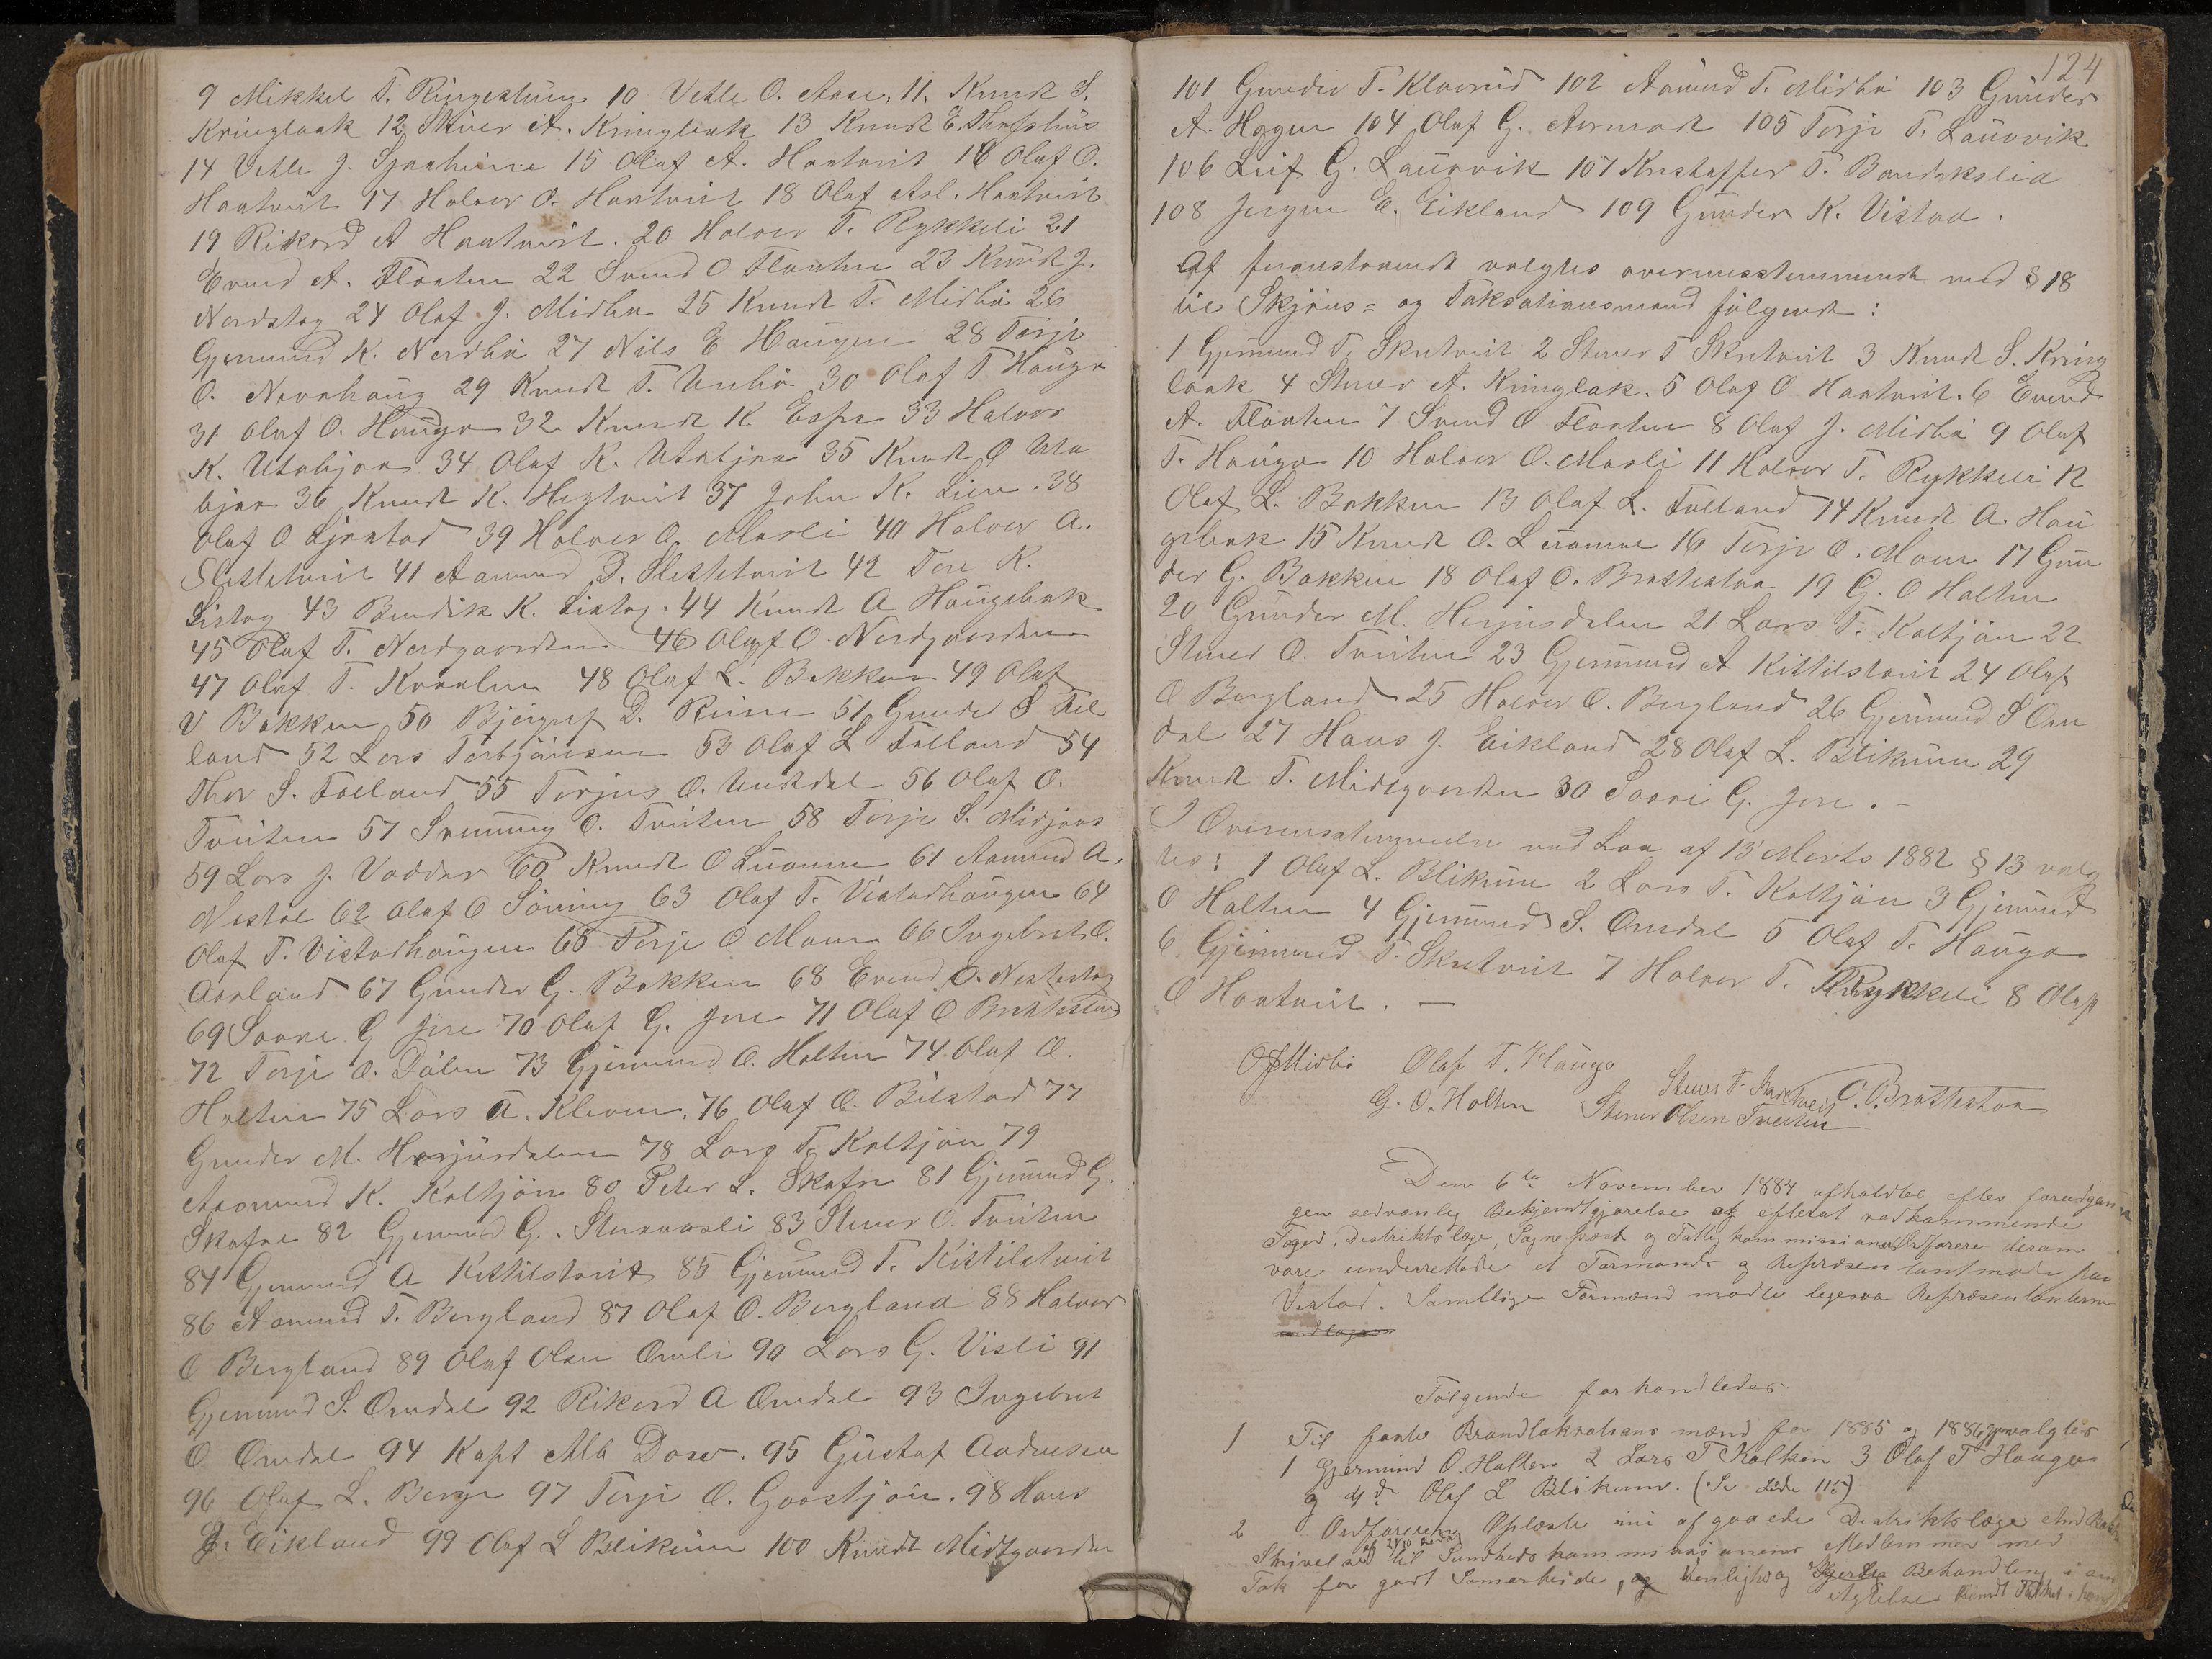 9 Mikkel T. Ringestuen 10 Vetle O. Aase, 11, Knudt S.
Kringlaak 12 Stner A. Kringlaak 13 Knudt E.
14 Vetle J. 15 Olaf A. Haatveit 16 Olaf O.
Haatveit 17 Halvor O. Haatveit 18 Olaf Asl. Haatveit
19 Rikord A Haatveit. 20 Halvor T. Rykkeli 21
Evend A. Flaaten 22 Svend O Flaaten 23 Knudt J.
Nordstog 24 Olaf J. Midbø 25 Knudt T. Midbø 26
Gjermund K. Nordbø 27 Nils E Haugen 28 Terje
O. Norshaug 29 Knudt T. 30 Olaf T Hauga
31 Olaf O. Hauga 32 Knudt K Espe 33 Halvor
K. Utabjaa 34 Olaf K. Utabjaa 35 Knudt O Uta
bjaa 36 Knudt K. Hegtveit 37 John K. Lien. 38
Olaf O Ljostad 39 Halvor O. Masli 40 Halvor A.
Slettetveit 41 Aamund D. Slettetveit 42 Tore K.
Listog 43 Bendik K. Listog. 44 Knudt A Haugebak
45 Olaf T. Nordgaarden 46 Olaf O. Nordgaarden
47 Olaf T. Kvaalen 48 Olaf L. Bakken 49 Olaf
V Bakken 50 Bjørguf D. Reine 51 Gunder S Fol
land 52 Lars Torbjönsen 53 Olaf L Folland 54
Thor S. Folland 55 Torjus O. 56 Olaf O.
Tveiten 57 Sveinung O. Tveiten 58 Terje S. Midjaas
59 Lars J. Vadder 60 Knudt O Luamme 61 Aamund A.
Mostøl 62 Olaf O Søning 63 Olaf T. Vistadhaugen 64
Olaf T. Vistadhaugen 65 Terje O Moen 66 Ingebret O.
Aarland 67 Gunder G. Bakken 68 Evend O. Nestestog
69 Saave G Jore 70 Olaf G. Jore 71 Olaf O Brattestaa
72 Terje O. Dalen 73 Gjermund O. Holten 74 Olaf O.
Holten 75 Lars A. Kleven. 76 Olaf O. Bilstad 77
Gunder M. Herjusdalen 78 Lars T. Koltjøn 79
Aasmund K. Koltjøn 80 Peter L. Skafse 81 Gjermund G.
Skafse 82 Gjermund G. 83 Stner O. Tveiten
84 Gjermund A Kittilstveit 85 Gjermund T. Kittilstveit
86 Aamund T. Bergland 87 Olaf O. Bergland 88 Halvor
O Bergland 89 Olaf Olsen Omli 90 Lars G. Visli 91
Gjermund S. Omdal 92 Rikord A Omdal 93 Ingebret
O Omdal 94 Kapt Alb Dow. 95 Gustaf Andresen
96 Olaf L. Berge 97 Terje O. Goostjøn. 98 Hans
J. Eikland 99 Olaf L Blikum 100 Knudt Midtgaarden
124
101 Gunder T. Klovrud 102 Aamund T. Midbø 103 Gunder
A. Hegge 104 Olaf G. 105 Terje T. Lauvvik
106 Leif G. Lauvvik 107 Kristaffer T. Bandakslia
108 Jørgen E. Eikland 109 Gunder K. Vistad.
Af foranstaaende valgtes overensstemmende med § 18
til Skjøns- og Taksationsmænd følgende:
1 Gjermund T. Skutveit 2 Stner T Skutveit 3 Knudt S. Kring
laak 4 Stner A. Kringlak. 5 Olaf O Haatveit. 6 Evend
A. Flaaten 7 Svend O Flaaten 8 Olaf J. Midbø 9 Olaf
T. Hauga 10 Halvor O. Masli 11 Halvor T. Rykkeli 12
Olaf L. Bakken 13 Olaf L. Folland 14 Knudt A. Hau
gebak 15 Knudt O. Luamme 16 Terje O. Moen 17 Gun
der G. Bakken 18 Olaf O. Brattestaa 19 G. O Holten
20 Gunder M. Herjusdalen 21 Lars T. Koltjøn 22
Stner O. Tveiten 23 Gjermund A Kittilstveit 24 Olaf
O Bergland 25 Halvor O. Bergland 26 Gjermund S Om
dal 27 Hans J. Eikland 28 Olaf L. Blikum 29
Knudt T. Midtgaarden 30 Saave G. Jore. -
I Overensstemmelse med Lov af 13 Marts 1882 § 13 valg
tes: 1 Olaf L. Blikum 2 Lars T. Koltjøn 3 Gjermund
O Holten 4 Gjermund S. Omdal 5 Olaf T. Hauga
6 Gjermund T. Skutveit 7 Halvor T. Rykkeli 8 Olaf
O Haatveit. -
O J Midbö Olaf T. Hauga
Stener T. Skrutveit O. O. Brattestaa
G. O. Holten Stener Olsen Tveiten
Den 6te November 1884 afholdtes efter foreudgan
gen sedvanlig Bekjendtgjørelse og efterat vedkommende
Foged, Distriktslæge, Sogneprest og Fattigkommissionens Ordførere derom
vare underrettede et Formands og Repræsentantmøde paa
Vistad. Samtlige Formænd mødte ligesaa Repræsentanterne
Følgende forhandledes:
1 Til faste Brandtakstations mænd for 1885 og 1886 gjenvalgtes
1 Gjermund O. Holten 2 Lars T Koltken 3 Olaf T Hauga
og 4de Olaf L Blikum. (Se Side 115)
2 Ordføreren Oplæste en afgaaede Distriktslæge
Skrivelse af 24/10 til Sundhedskommissionens Medlemmer med
Tak for godt Samarbeide, og Venlighed og Behandling i